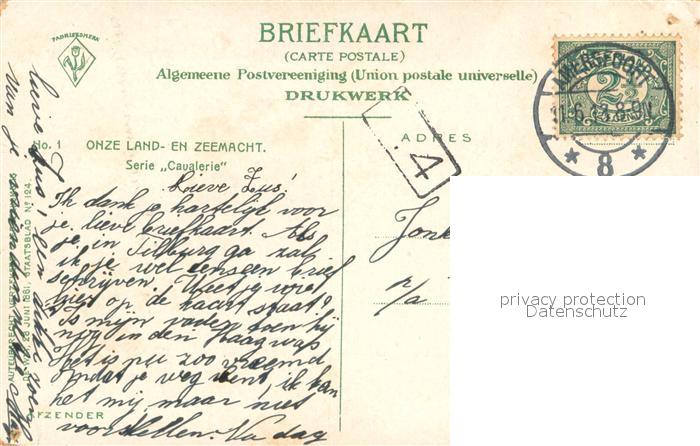 FABRIEKSMERK
BRIEFKAART
(CARTE POSTALE)
Algemeene Postvereeniging (Union postale universelle)
DRUKWERK
AMERSFOORT
2½
8-9N
8
4
No. 1 ONZE LAND- EN ZEEMACHT.
Serie „Cavalerie"
ADRES
Lieve Zus!
Ik dank je hartelijk voor
je lieve briefkaart. Als
je in Tilburg ga zal
ik je wel eens een brief
schrijven. Weet je wie
er op de kaart staat?
Is mijn vader toen hij
nog in den Haag was
Het is nu zoo vreemd
omdat je weg bent, ik kan
het mij maar niet
voorstellen. Nu dag
lieve Zus! een
van je vriendin
AFZENDER
AUTEURSRECHT VERZEKERD
DE WET, 28 JUNI 1881, STAATSBLAD No 124.
Jonk
p/a
privacy protection
Datenschutz